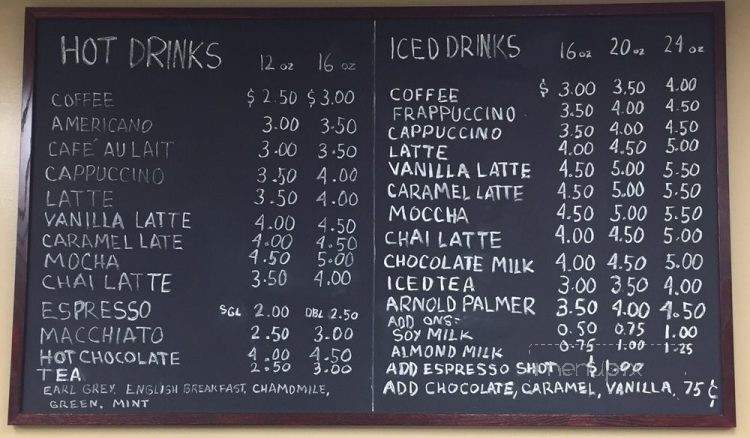 HOT DRINKS 12 oz 16 oz
COFFEE $2.50 $3.00
AMERICANO 3.00 3.50
CAFÉ AU LAIT 3.00 3.50
CAPPUCCINO 3.50 4.00
LATTE 3.50 4.00
VANILLA LATTE 4.00 4.50
CARAMEL LATE 4.00 4.50
MOCHA 4.50 5.00
CHAI LATTE 3.50 4.00
ESPRESSO SGL 2.00 DBL 2.50
MACCHIATO 2.50 3.00
HOT CHOCOLATE 4.00 4.50
TEA 2.50 3.00
EARL GREY, ENGLISH BREAKFAST, CHAMOMILE,
GREEN, MINT
ICED DRINKS 16 oz 20 oz 24 oz
COFFEE $ 3.00 3.50 4.00
FRAPPUCCINO 3.50 4.00 4.50
CAPPUCCINO 3.50 4.00 4.50
LATTE 4.00 4.50 5.00
VANILLA LATTE 4.50 5.00 5.50
CARAMEL LATTE 4.50 5.00 5.50
MOCCHA 4.50 5.00 5.50
CHAI LATTE 4.00 4.50 5.00
CHOCOLATE MILK 4.00 4.50 5.00
ICED TEA 3.00 3.50 4.00
ARNOLD PALMER 3.50 4.00 4.50
ADD ONS:
SOY MILK 0.50 0.75 1.00
ALMOND MILK 0.75 1.00 1.25
ADD ESPRESSO SHOT $1.00
menupix
ADD CHOCOLATE, CARAMEL, VANILLA, 75¢